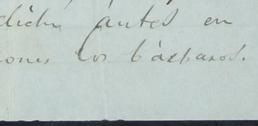 dicho ántes en
ones los bárbaros.